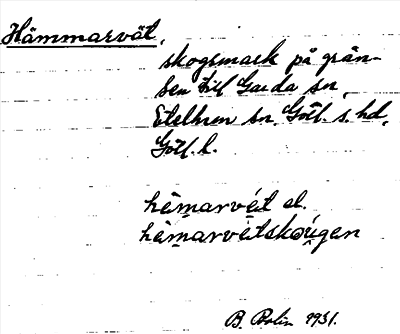 Hämmarvät,
skogsmark på grän-
sen till Garda sn,
Etelhem sn, Gotl. s. hd,
Gotl. l.
hèm̱arvét el.
hèm̱arvétskoúgen
B. Bolin 1931.